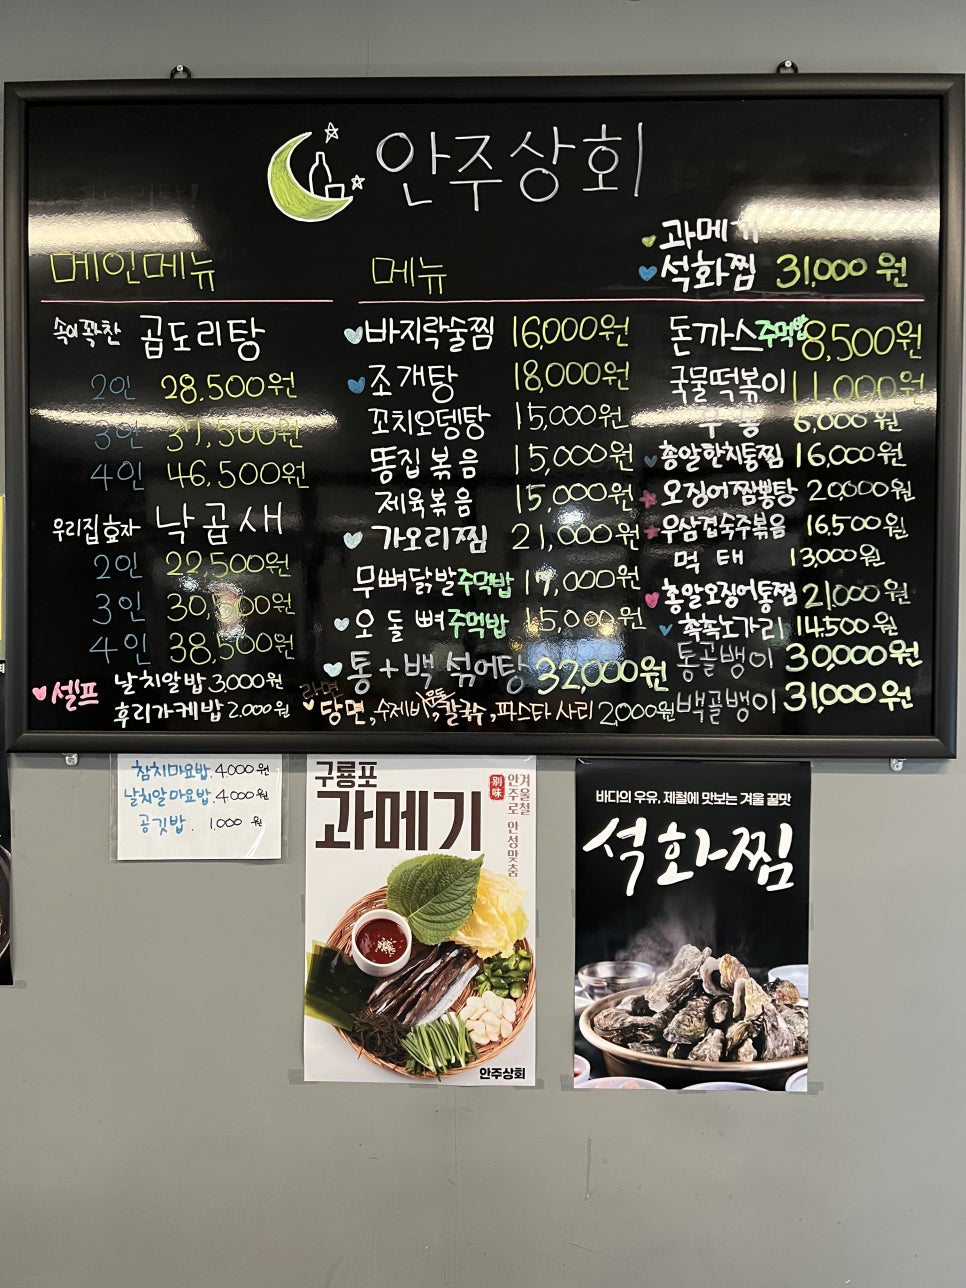 안주상회
과메기
석화찜 31,000원
메인메뉴
속이꽉찬 곱도리탕
2인 28,500원
3인 37,500원
4인 46,500원
우리집효자 낙곱새
2인 22,500원
3인 30,500원
4인 38,500원
셀프 날치알밥 3,000원
후리가케밥 2,000원
메뉴
바지락술찜 16,000원
조개탕 18,000원
꼬치오뎅탕 15,000원
똥집볶음 15,000원
제육볶음 15,000원
가오리찜 21,000원
무뼈닭발주먹밥 17,000원
오돌뼈주먹밥 15,000원
통+백 섞어탕 32,000원
라면
당면, 수제비, 우동, 칼국수, 파스타 사리 2,000원
돈까스주먹밥 8,500원
국물떡볶이 11,000원
우동 6,000원
총알한치통찜 16,000원
오징어짬뽕탕 20,000원
우삼겹숙주볶음 16,500원
먹태 13,000원
총알오징어통찜 21,000원
촉촉노가리 14,500원
통골뱅이 30,000원
백골뱅이 31,000원
참치마요밥. 4,000원
날치알마요밥. 4,000원
공깃밥. 1,000원
구룡포
과메기
別味
겨울철
안주로 안성맞춤
안주상회
바다의 우유, 제철에 맛보는 겨울 꿀맛
석화찜